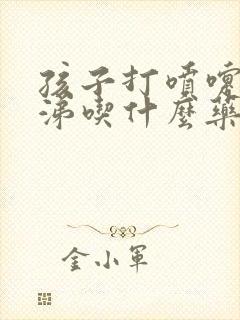 孩子打噴嚏
涕喫什麼藥
金小軍